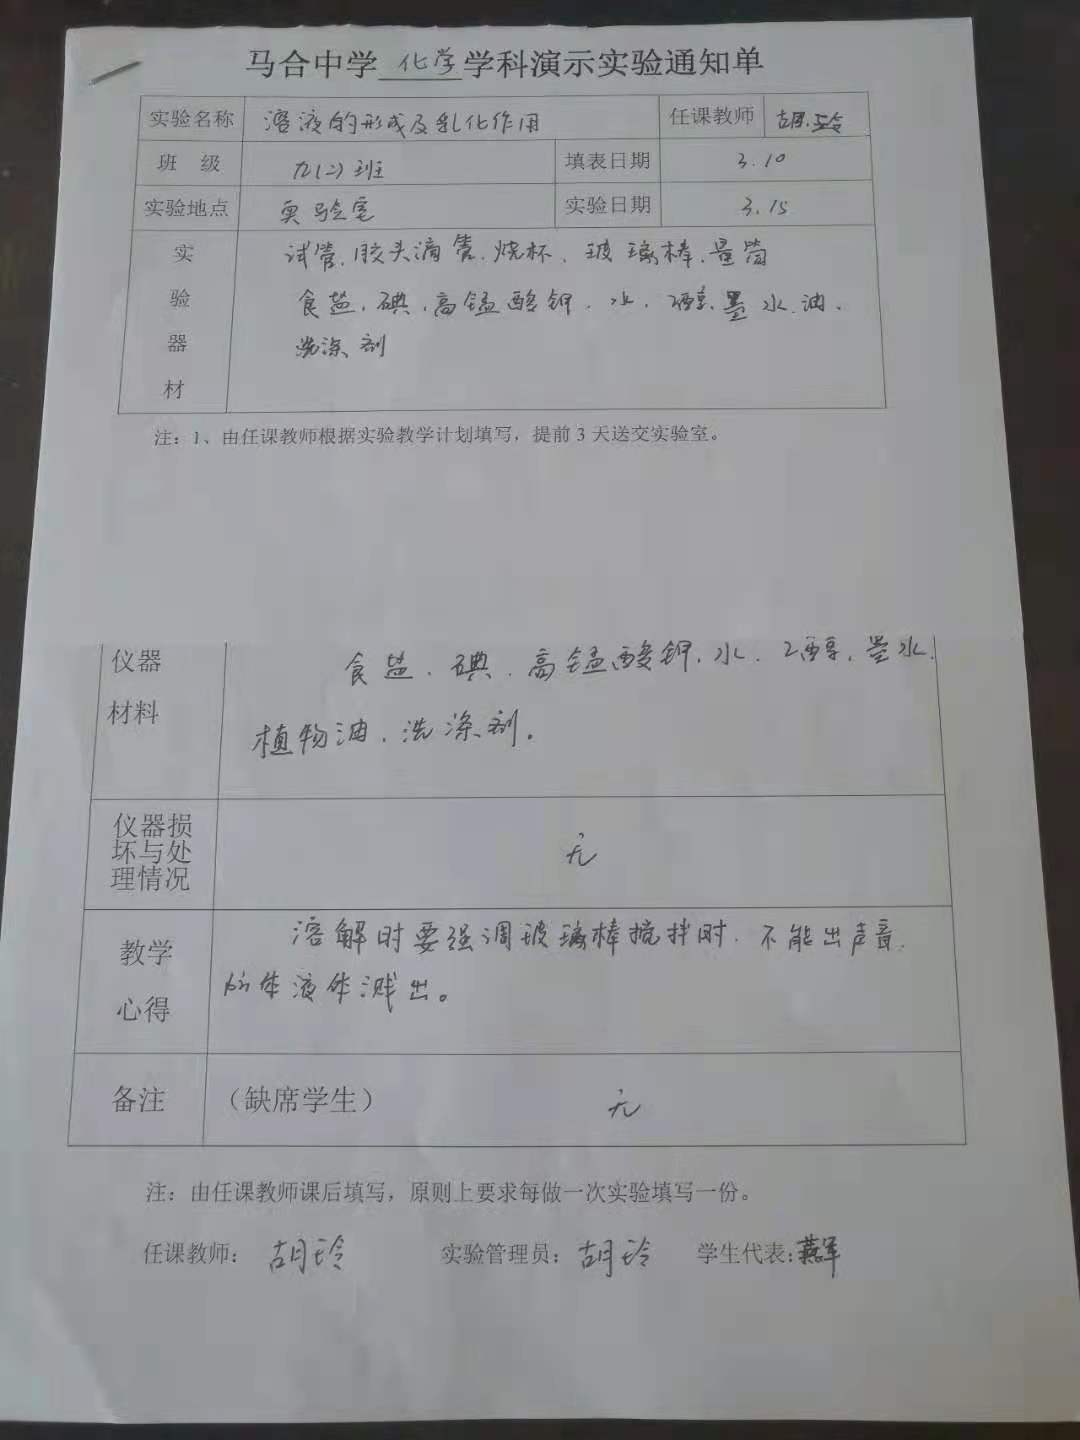 马合中学 化学 学科演示实验通知单
实验名称 溶液的形成及乳化作用 任课教师 胡玲
班 级 九(二)班 填表日期 3.10
实验地点 实验室 实验日期 3.15
实验器材 试管、胶头滴管、烧杯、玻璃棒、量筒
食盐、碘、高锰酸钾、水、乙醇、墨水、油、
洗涤剂
注：1、由任课教师根据实验教学计划填写，提前 3 天送交实验室。
仪器 食盐、碘、高锰酸钾、水、乙醇、墨水、
材料 植物油、洗涤剂。
仪器损
坏与处 无
理情况
教学 溶解时要强调玻璃棒搅拌时，不能出声音，
心得 液体溅出。
备注 （缺席学生） 无
注：由任课教师课后填写，原则上要求每做一次实验填写一份。
任课教师： 胡玲 实验管理员：胡玲 学生代表：